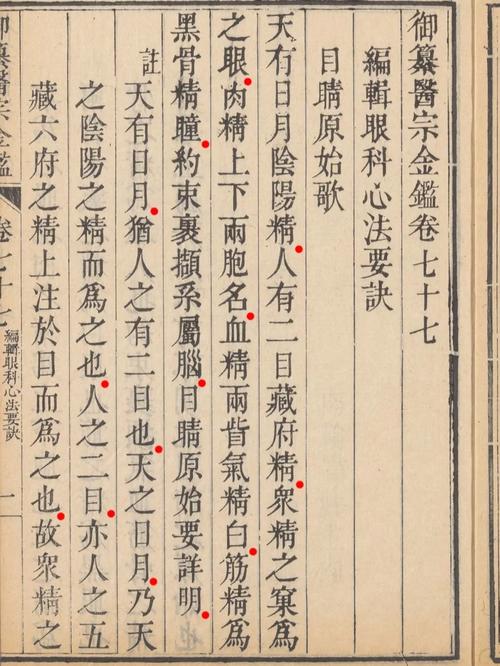 御纂醫宗金鑑卷七十七
編輯眼科心法要訣
目睛原始歌
天有日月陰陽精人有二目藏府精衆精之窠爲
之眼肉精上下兩胞名血精兩眥氣精白筋精爲
黑骨精瞳約束裹擷系屬腦目睛原始要詳明
註
天有日月猶人之有二目也天之日月乃天
之陰陽之精而爲之也人之二目亦人之五
藏六府之精上注於目而爲之也故衆精之
御纂醫宗金鑑
卷七十七
編輯眼科心法要訣
一